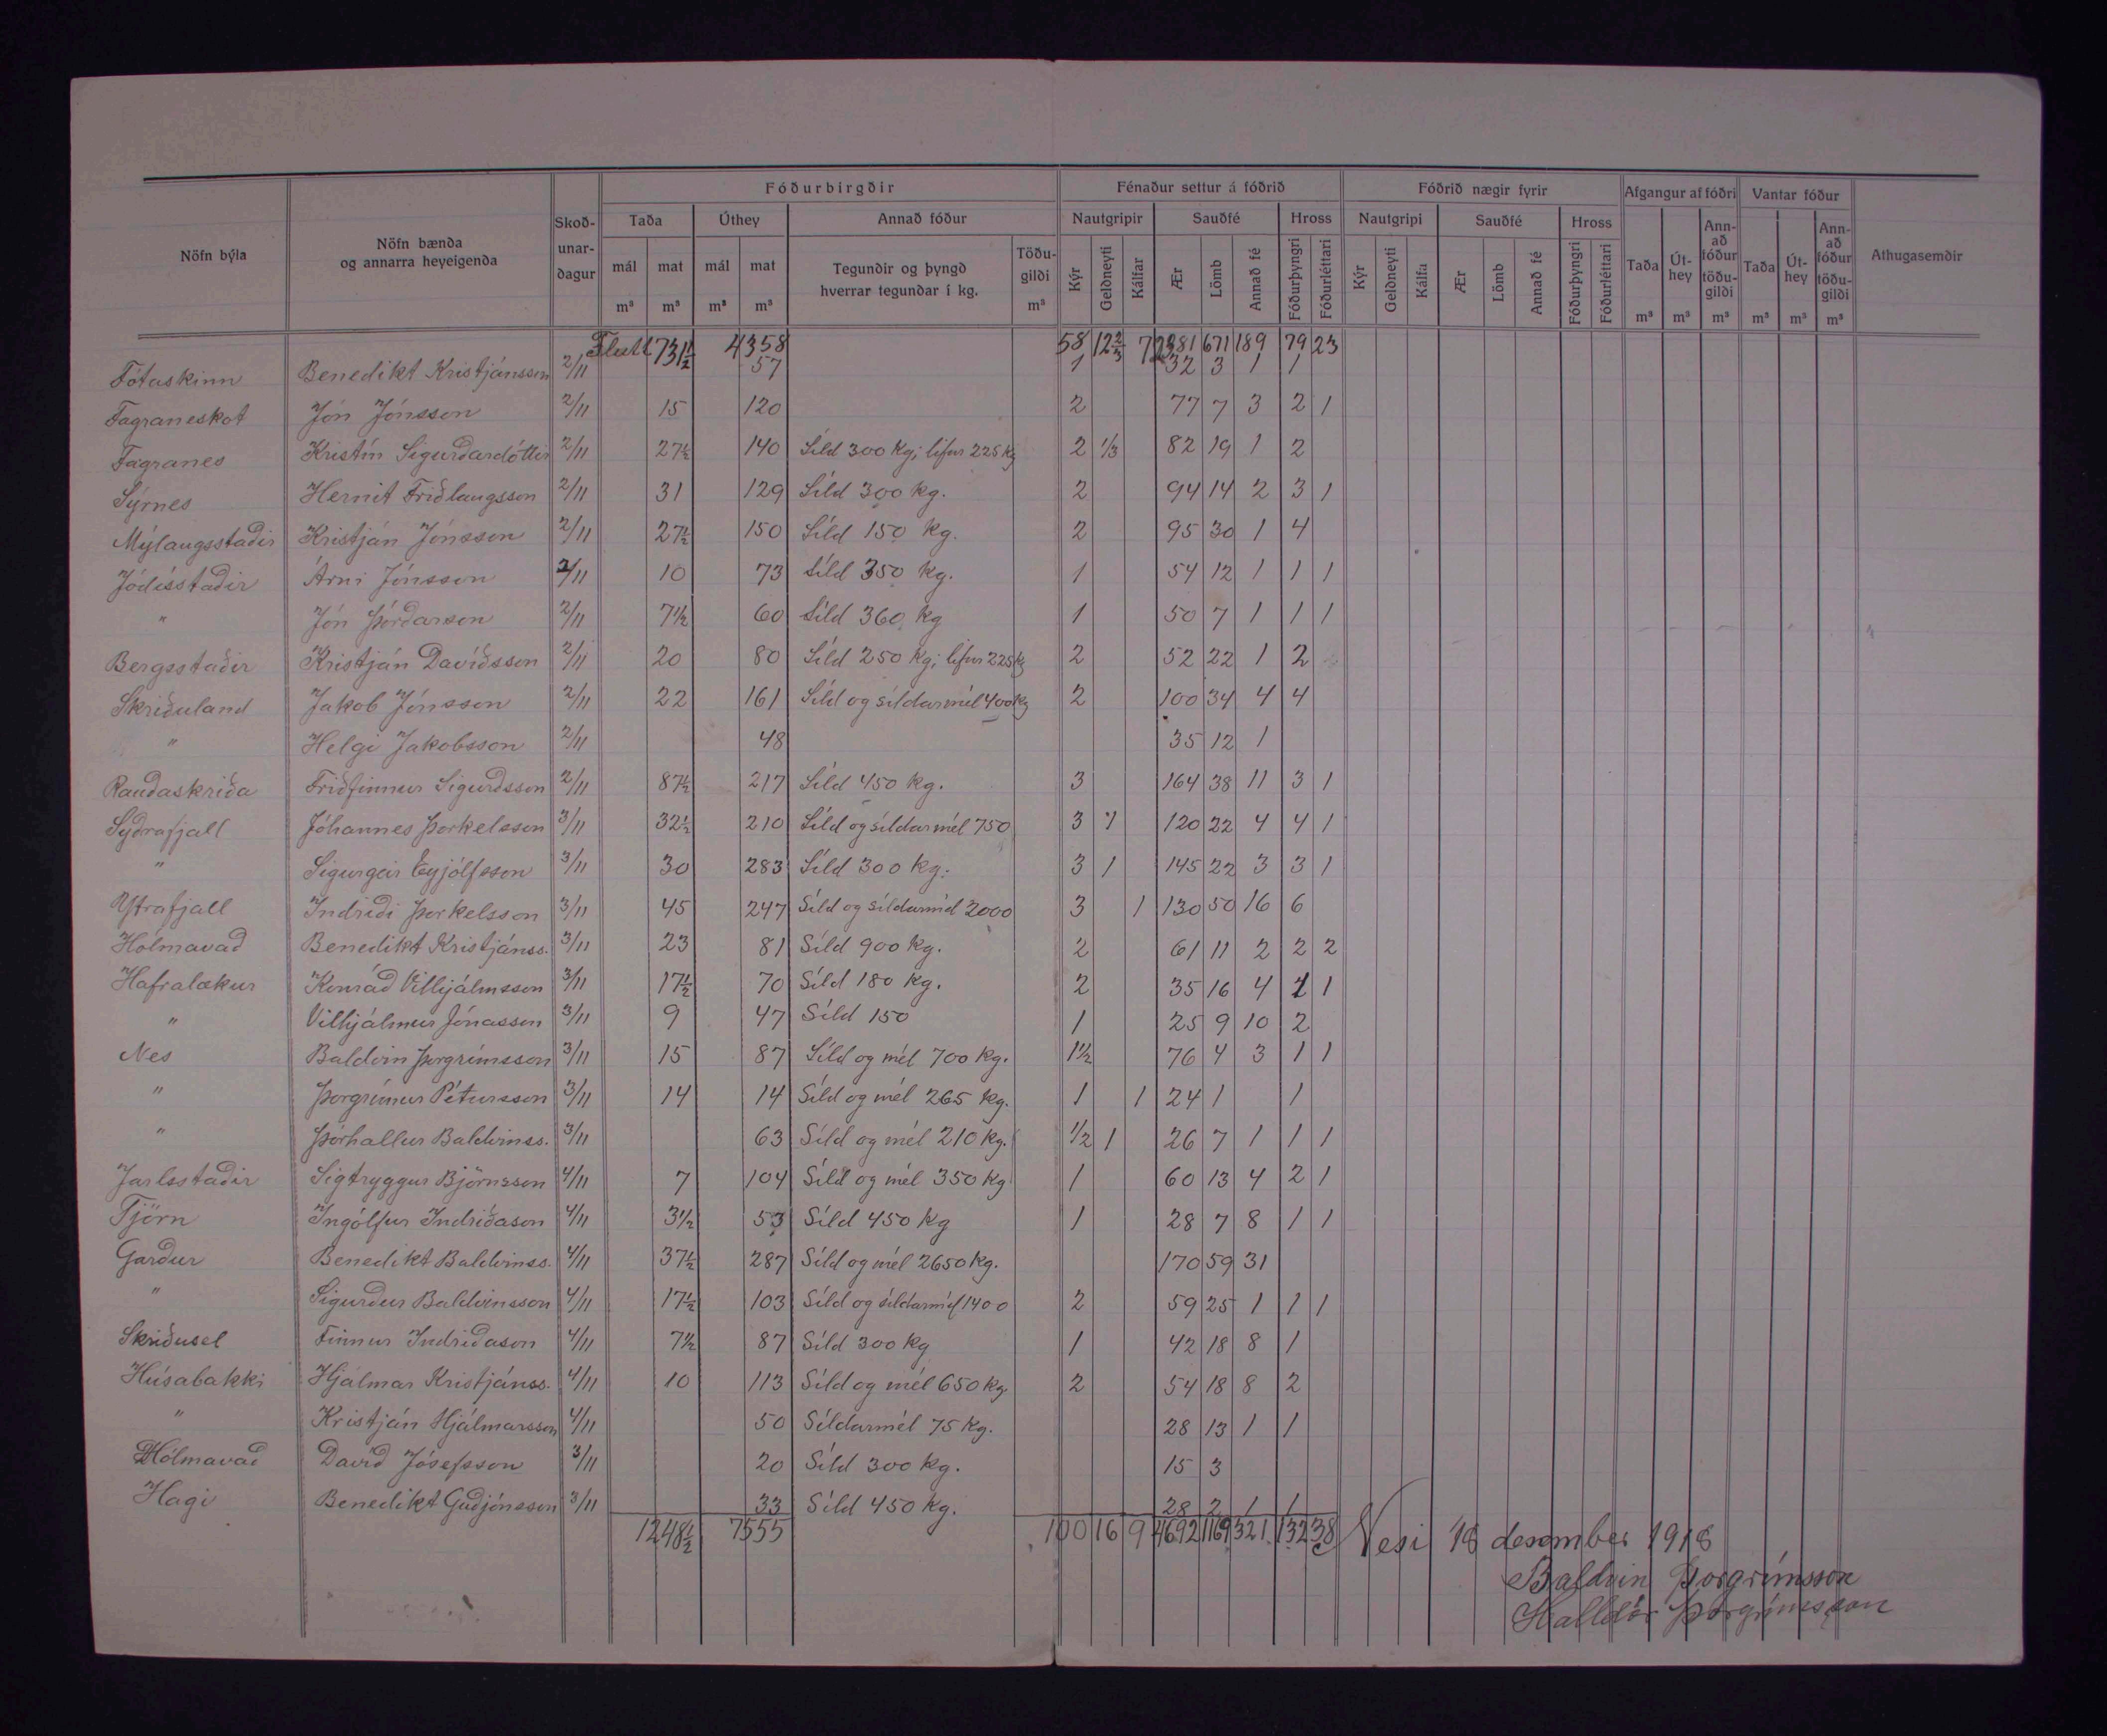 Fóðurbirgðir Fénaður settur á fóðrið Fóðrið nægir fyrir Afgangur af fóðri Vantar fóður
Nöfn býla Nöfn bænda og annarra heyeigenda Skoð-unar-dagur Taða Úthey Annað fóður Nautgripir Sauðfé Hross Nautgripi Sauðfé Hross Taða Út-hey Ann-að fóður töðu-gildi Taða Út-hey Ann-að fóður töðu-gildi Athugasemdir
mál mat mál mat Tegundir og þyngd hverrar tegundar í kg. Töðu-gildi Kýr Geldneyti Kálfar Ær Lömb Annað fé Fóðurþyngri Fóðurléttari Kýr Geldneyti Kálfa Ær Lömb Annað fé Fóðurþyngri Fóðurléttari
m³ m³ m³ m³ m³ m³ m³ m³ m³ m³ m³
Flutt 731½ 4358 58 12⅔ 7 2381 671 189 79 23
Fótaskinn Benedikt Kristjánsson 2/11 57 1 32 3 1 1
Fagraneskot Jón Jónsson 2/11 15 120 2 77 7 3 2 1
Fagranes Kristín Sigurðardóttir 2/11 27½ 140 Síld 300 Kg; lifur 225 Kg 2 1/3 82 19 1 2
Sýrnes Hernit Friðlaugsson 2/11 31 129 Síld 300 kg. 2 94 14 2 3 1
Mýlaugsstaðir Kristján Jónsson 2/11 27½ 150 Síld 150 kg. 2 95 30 1 4
Jódísstaðir Árni Jónsson 2/11 10 73 Síld 350 kg. 1 54 12 1 1 1
" Jón Þórðarson 2/11 7½ 60 Síld 360 kg 1 50 7 1 1 1
Bergsstaðir Kristján Davíðsson 2/11 20 80 Síld 250 Kg; lifur 225 kg 2 52 22 1 2
Skriðuland Jakob Jónsson 2/11 22 161 Síld og síldarmél 400 kg 2 100 34 4 4
" Helgi Jakobsson 2/11 48 35 12 1
Rauðaskriða Friðfinnur Sigurðsson 2/11 87½ 217 Síld 450 kg. 3 164 38 11 3 1
Syðrafjall Jóhannes Þorkelsson 3/11 32½ 210 Síld og síldarmél 750 3 1 120 22 4 4 1
" Sigurgeir Eyjólfsson 3/11 30 283 Síld 300 kg. 3 1 145 22 3 3 1
Ytrafjall Indriði Þorkelsson 3/11 45 247 Síld og síldarmél 2000 3 1 130 50 16 6
Hólmavað Benedikt Kristjánss. 3/11 23 81 Síld 900 kg. 2 61 11 2 2 2
Hafralækur Konráð Vilhjálmsson 3/11 17½ 70 Síld 180 kg. 2 35 16 4 1 1
" Vilhjálmur Jónasson 3/11 9 47 Síld 150 1 25 9 10 2
Nes Baldvin Þorgrímsson 3/11 15 87 Síld og mél 700 kg. 1½ 76 4 3 1 1
" Þorgrímur Pétursson 3/11 14 14 Síld og mél 265 kg. 1 1 24 1 1
" Þórhallur Baldvinss. 3/11 63 Síld og mél 210 kg. 1/2 1 26 7 1 1 1
Jarlsstaðir Sigtryggur Björnsson 4/11 7 104 Síld og mél 350 kg 1 60 13 4 2 1
Tjörn Ingólfur Indriðason 4/11 3½ 53 Síld 450 kg 1 28 7 8 1 1
Garður Benedikt Baldvinss. 4/11 37½ 287 Síld og mél 2650 kg. 170 59 31
" Sigurður Baldvinsson 4/11 17½ 103 Síld og síldarmél 1400 2 59 25 1 1 1
Skriðusel Finnur Indriðason 4/11 7½ 87 Síld 300 kg 1 42 18 8 1
Húsabakki Hjálmar Kristjánss. 4/11 10 113 Síld og mél 650 kg. 2 54 18 8 2
" Kristján Hjálmarsson 4/11 50 Síldarmél 75 Kg. 28 13 1 1
Hólmavað Davíð Jósefsson 3/11 20 Síld 300 kg. 15 3
Hagi Benedikt Guðjónsson 3/11 33 Síld 450 kg. 28 2 1 1
1248½ 7555 100 16 9 4692 1169 321 132 38 Nesi 18 desember 1918
Baldvin Þorgrímsson
Halldór Þorgrímsson